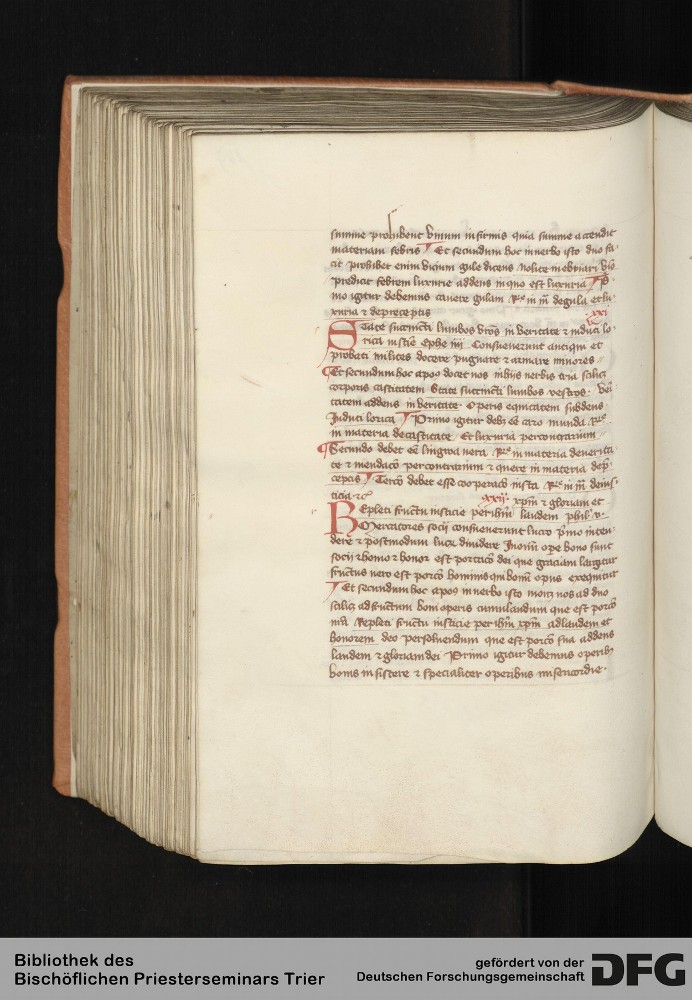 summe prohibent vinum infirmis quia summe accendit
materiam febris Et secundum hoc in verbo isto duo fa
cit prohibet enim vicium gule dicens nolite inebriari vino
predicit febrem luxurie addens in quo est luxuria P
mo igitur debemus cavere gulam Re in m de gula et lu
xuria et de preceptis
xxi
State succincti lumbos vros in veritate et induti lo
rica iusticie Ephe iiii Consueverunt antiqui et
probati milites docere pugnare et armare minores
Et secundum hoc apos docet nos in hiis verbis tria scilicet
corporis castitatem State succincti lumbos vestros veri
tatem addens in veritate Operis equitatem subdens
Induti lorica Primo igitur debet ee caro munda Re
in materia de castitate Et luxuria per contrarium
Secundo debet ee lingwa vera Re in materia de verita
te et mendacio per contrarium et quere in materia de pre
ceptis Tercio debet esse cooperacio iusta Re in m de ius
ticia etc
xxii xpm et gloriam et
Repleti fructu iusticie per ihm laudem phil p
Mercatores socii consueverunt lucro primo inten
dere et postmodum lucrum dividere In omni ope bono sunt
socii et homo et honor est porcio dei que graciam largitur
fructus vero est porcio hominis qui bonum opus exequitur
Et secundum hoc apos in verbo isto monet nos ad duo
scilicet ad fructum boni operis cumulandum que est porcio
nra Repleti fructu iusticie per ihm xpm ad laudem et
honorem deo persolvendum que est porcio sua addens
laudem et gloriam dei Primo igitur debemus operibus
bonis insistere et specialiter operibus misericordie
Bibliothek des
Bischöflichen Priesterseminars Trier
gefördert von der
Deutschen Forschungsgemeinschaft
DFG